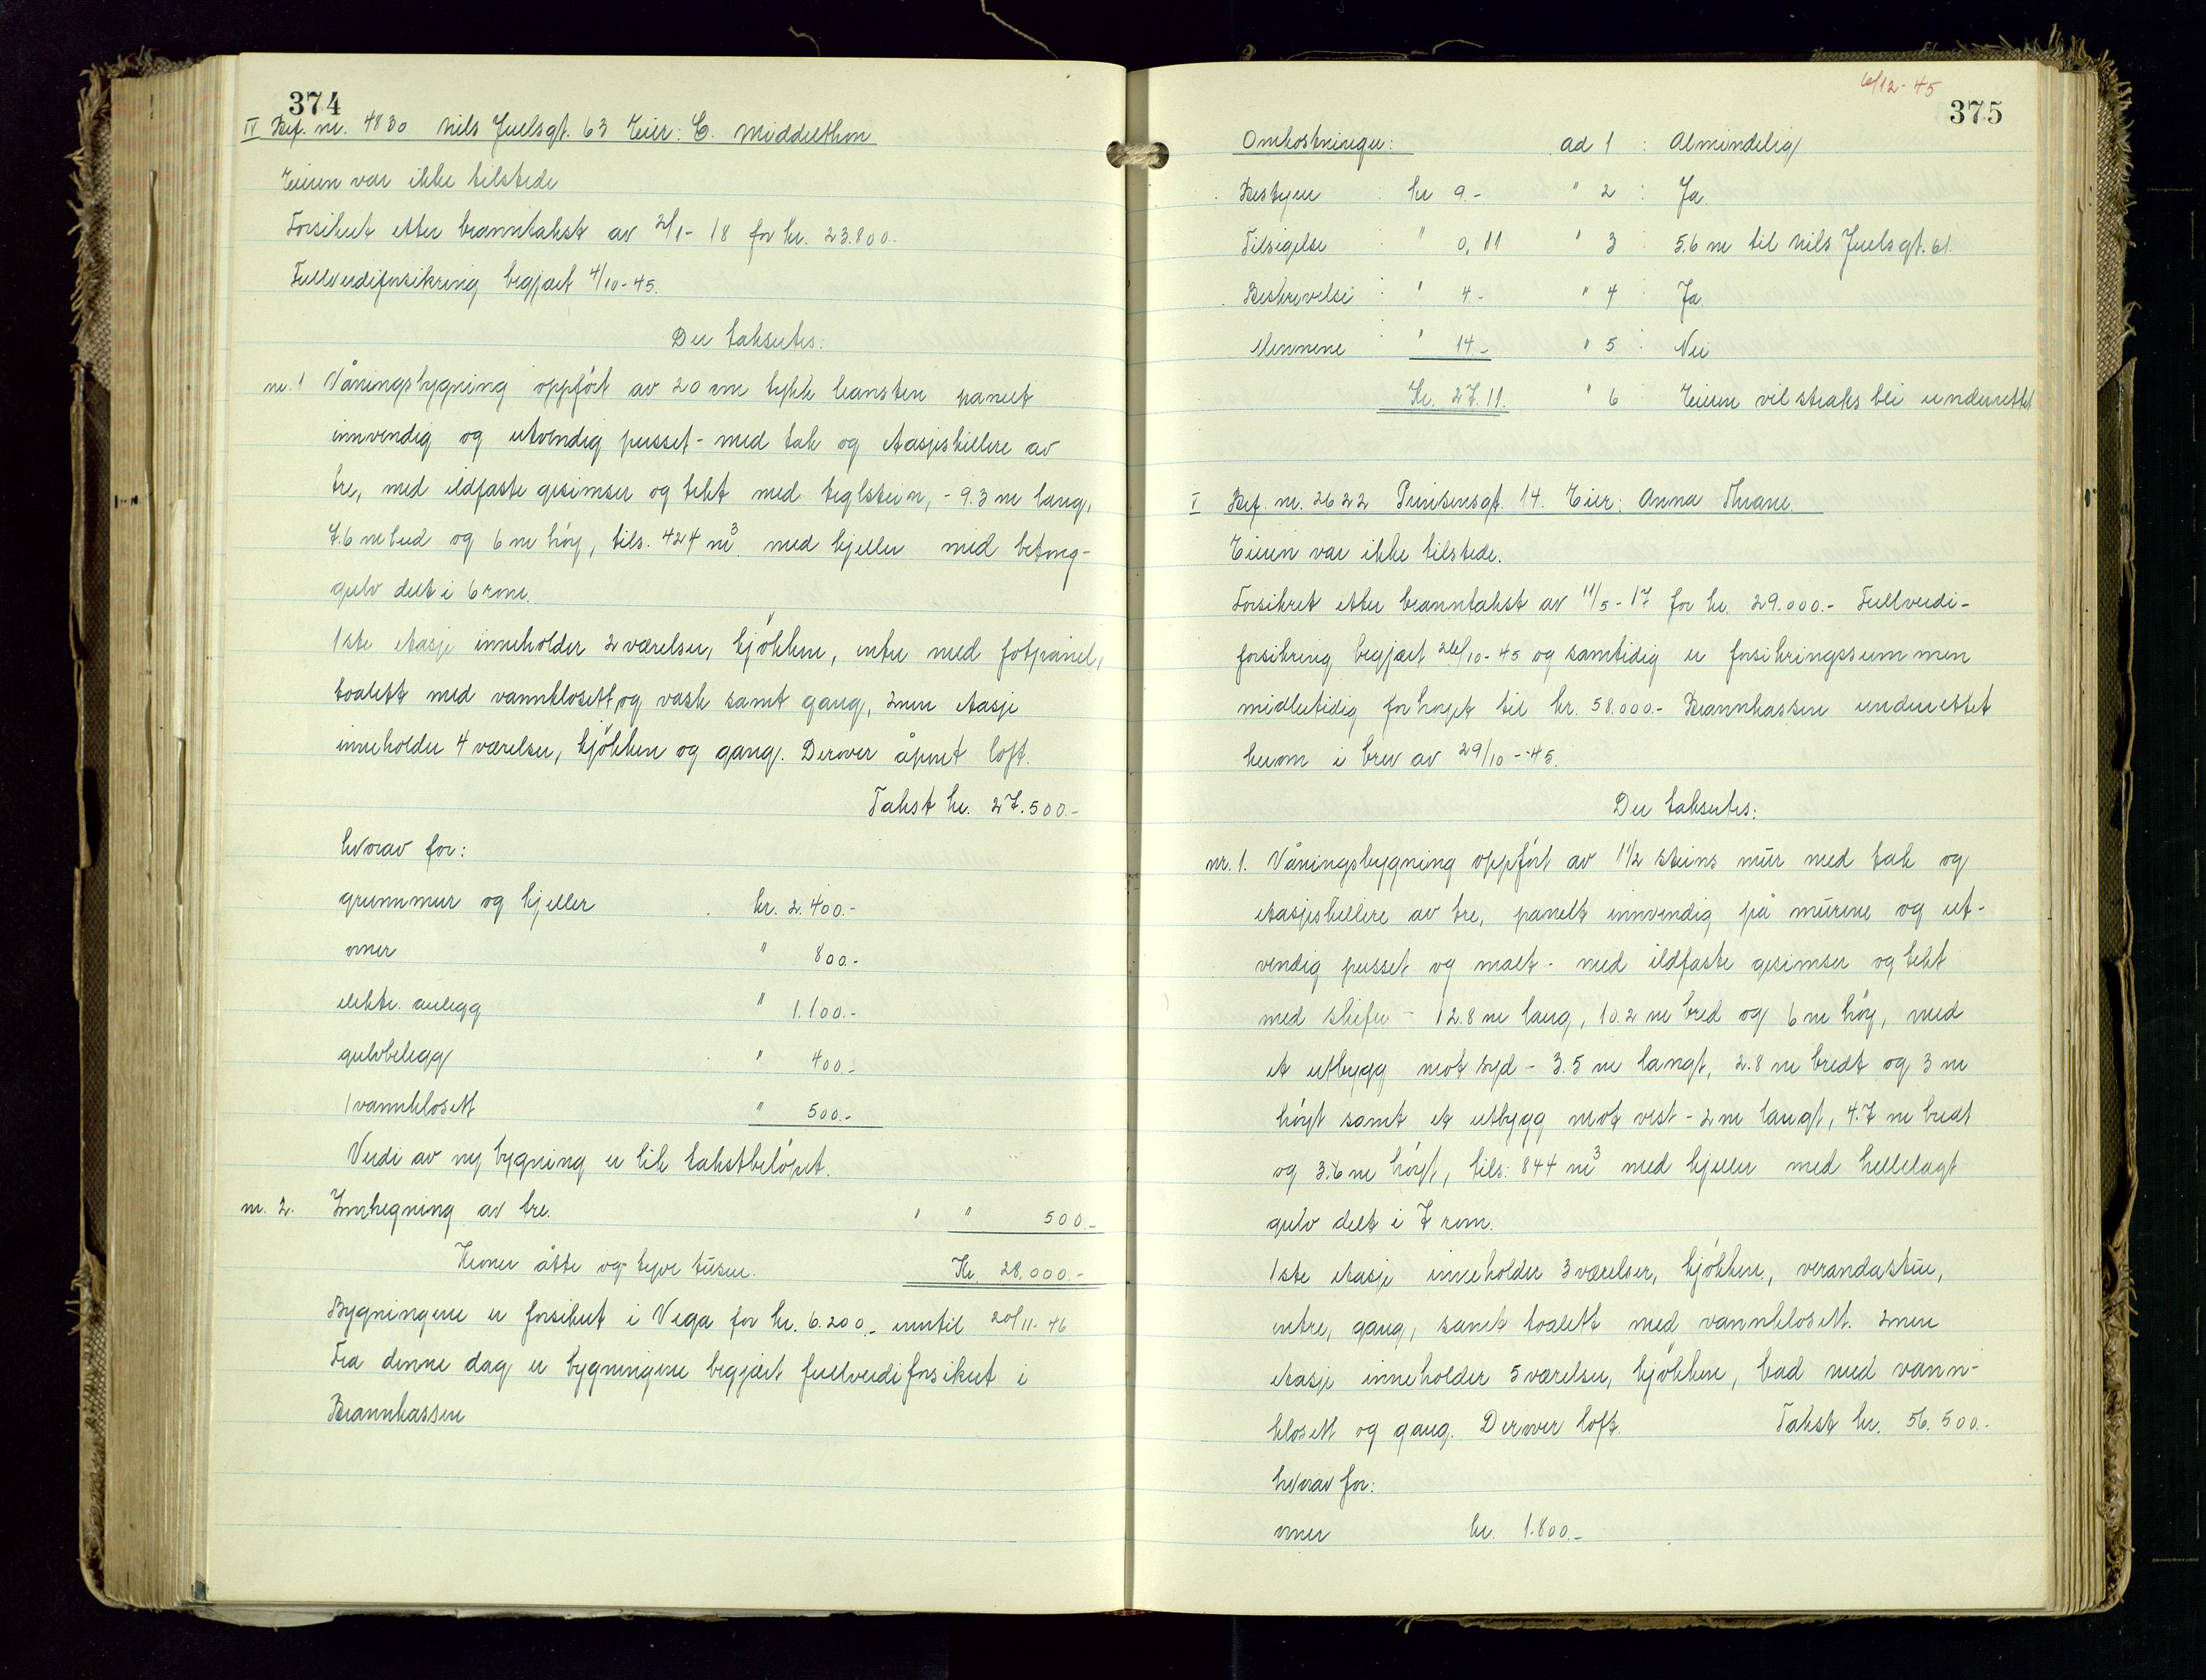 374
IV Bef. nr. 4830 Nils Juelsgt. 63 Eier: C. Middelthon
Eieren var ikke tilstede
Forsikret etter branntakst av 21/1-18 for kr. 23.800.-
Fullverdiforsikring begjært 4/10-45.
Der takseres:
nr. 1 Våningsbygning oppført av 20 cm tykk leansten panelt
innvendig og utvendig pusset - med tak og etasjeskillere av
tre, med ildfaste gesimser og tekt med teglstein, - 9.3 m lang,
7.6 m bred og 6 m høy, tils. 424 m³ med kjeller med betong-
gulv delt i 6 rom.
1ste etasje inneholder 2 værelser, kjøkken, entre med fotpanel,
toalett med vannklosett og vask samt gang, 2nen etasje
inneholder 4 værelser, kjøkken og gang. Derover åpent loft.
Takst kr. 27.500.-
hvorav for:
grunnmur og kjeller kr. 2.400.-
ovner " 800.-
elektr. anlegg " 1.100.-
gulvbelegg " 400.-
1 vannklosett " 500.-
Verdi av ny bygning er lik takstbeløpet.
nr. 2. Innhegning av tre. " " 500.-
Kroner åtte og tyve tusen. Kr. 28.000.-
Bygningene er forsikret i Vega for kr. 6.200.- inntil 20/11-46
Fra denne dag er bygningene begjært fullverdiforsikret i
Brannkassen
6/12-45
375
Omkostninger: ad 1 : Almindelig
Bestyrer : kr 9.- " 2 : Ja
Tilsigelse : " 0,11 " 3 : 5.6 m til Nils Juelsgt. 61.
Beskrivelse : " 4.- " 4 : Ja
Mennene : " 14.- " 5 : Nei
Kr. 27.11. " 6 Eieren vil straks bli underrettet
V Bef. nr. 2622 Prinsensgt. 14. Eier: Anna Thrane.
Eieren var ikke tilstede.
Forsikret etter branntakst av 11/5-17 for kr. 29.000.- Fullverdi-
forsikring begjært 26/10-45 og samtidig er forsikringssummen
midlertidig forhøyet til kr. 58.000.- Brannkassen underrettet
herom i brev av 29/10-45.
Der takseres:
nr. 1. Våningsbygning oppført av 1 1/2 steins mur med tak og
etasjeskillere av tre, panelt innvendig på murene og ut-
vendig pusset og malt - med ildfaste gesimser og tekt
med skifer - 12.8 m lang, 10.2 m bred og 6 m høy, med
et utbygg mot syd - 3.5 m langt, 2.8 m bredt og 3 m
høyt samt et utbygg mot vest - 2 m langt, 4.7 m bredt
og 3.6 m høyt, tils: 844 m³ med kjeller med hellelagt
gulv delt i 7 rom.
1ste etasje inneholder 3 værelser, kjøkken, verandastue,
entre, gang, samt toalett med vannklosett. 2nen
etasje inneholder 5 værelser, kjøkken, bad med vann-
klosett og gang. Derover loft. Takst kr. 56.500.-
hvorav for:
ovner kr. 1.800.-